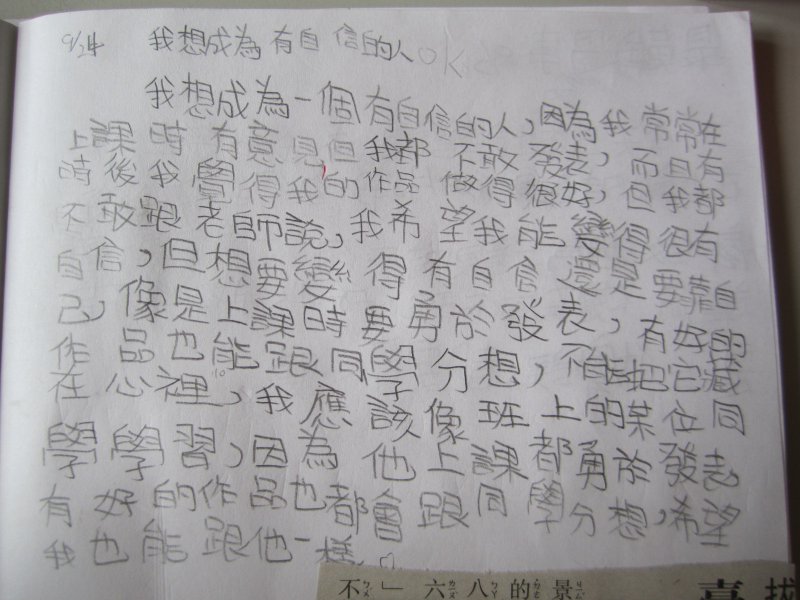 9/24 我想成為有自信的人 ok
我想成為一個有自信的人,因為我常常在
上課時有意見但我都不敢發表,而且有
時後我覺得我的作品做得很好,但我都
不敢跟老師說,我希望我能變得很有
自信,但想要變得有自信還是要靠自
己,像是上課時要勇於發表,有好的
作品也能跟同學分想,不能把它藏
在心裡,我應該像班上的某位同
學學習,因為他上課都勇於發志
有好的作品也都會跟同學分想,希望
我也能跟他一樣。
不」六八的景
ㄅㄨˋ ㄌㄧㄡˋ ㄅㄚ ㄉㄜ˙ ㄐㄧㄥˇ